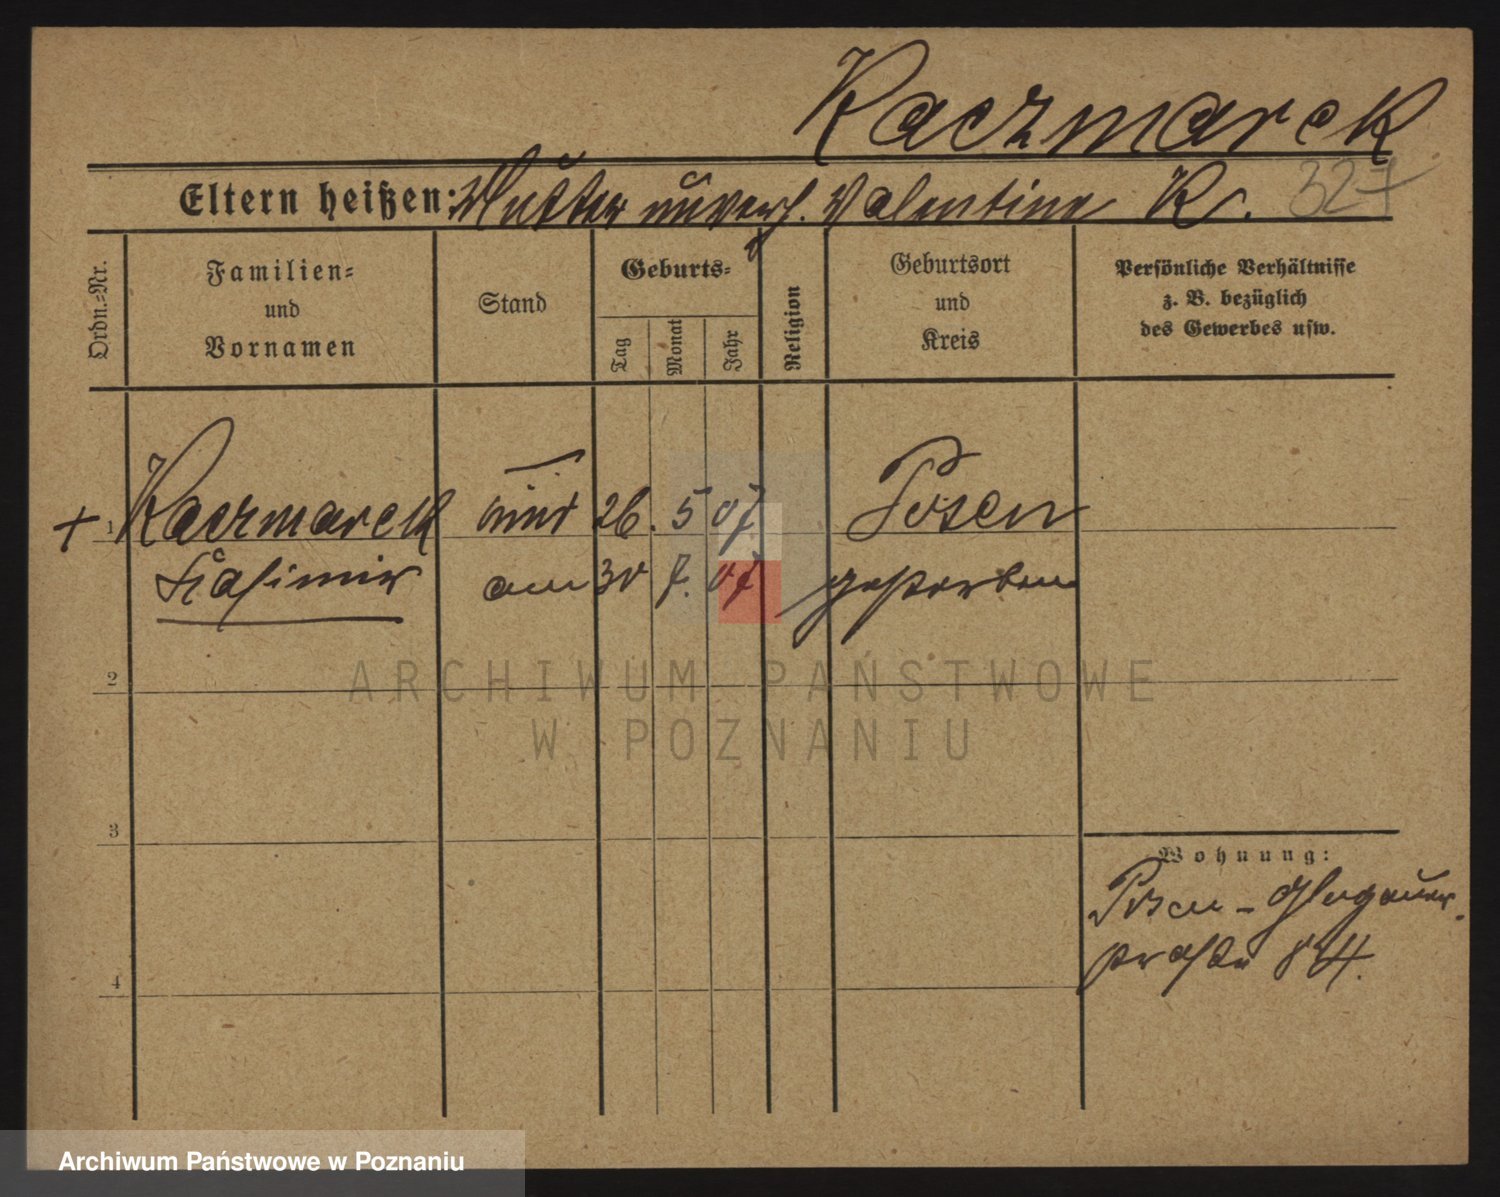 Kaczmarek
Eltern heißen: Mutter unverh. Valentine K. 327
Ordn.=Nr.
Familien=
und
Vornamen
Stand
Geburts=
Tag
Monat
Jahr
Religion
Geburtsort
und
Kreis
Persönliche Verhältnisse
z. B. bezüglich
des Gewerbes usw.
+ 1 Kaczmarek 26. 5 07 Posen
Kasimir am 30 7. 07 gestorben
2
3
4
Wohnung:
Posen - Glogauer
straße 84.
ARCHIWUM PAŃSTWOWE
W POZNANIU
Archiwum Państwowe w Poznaniu